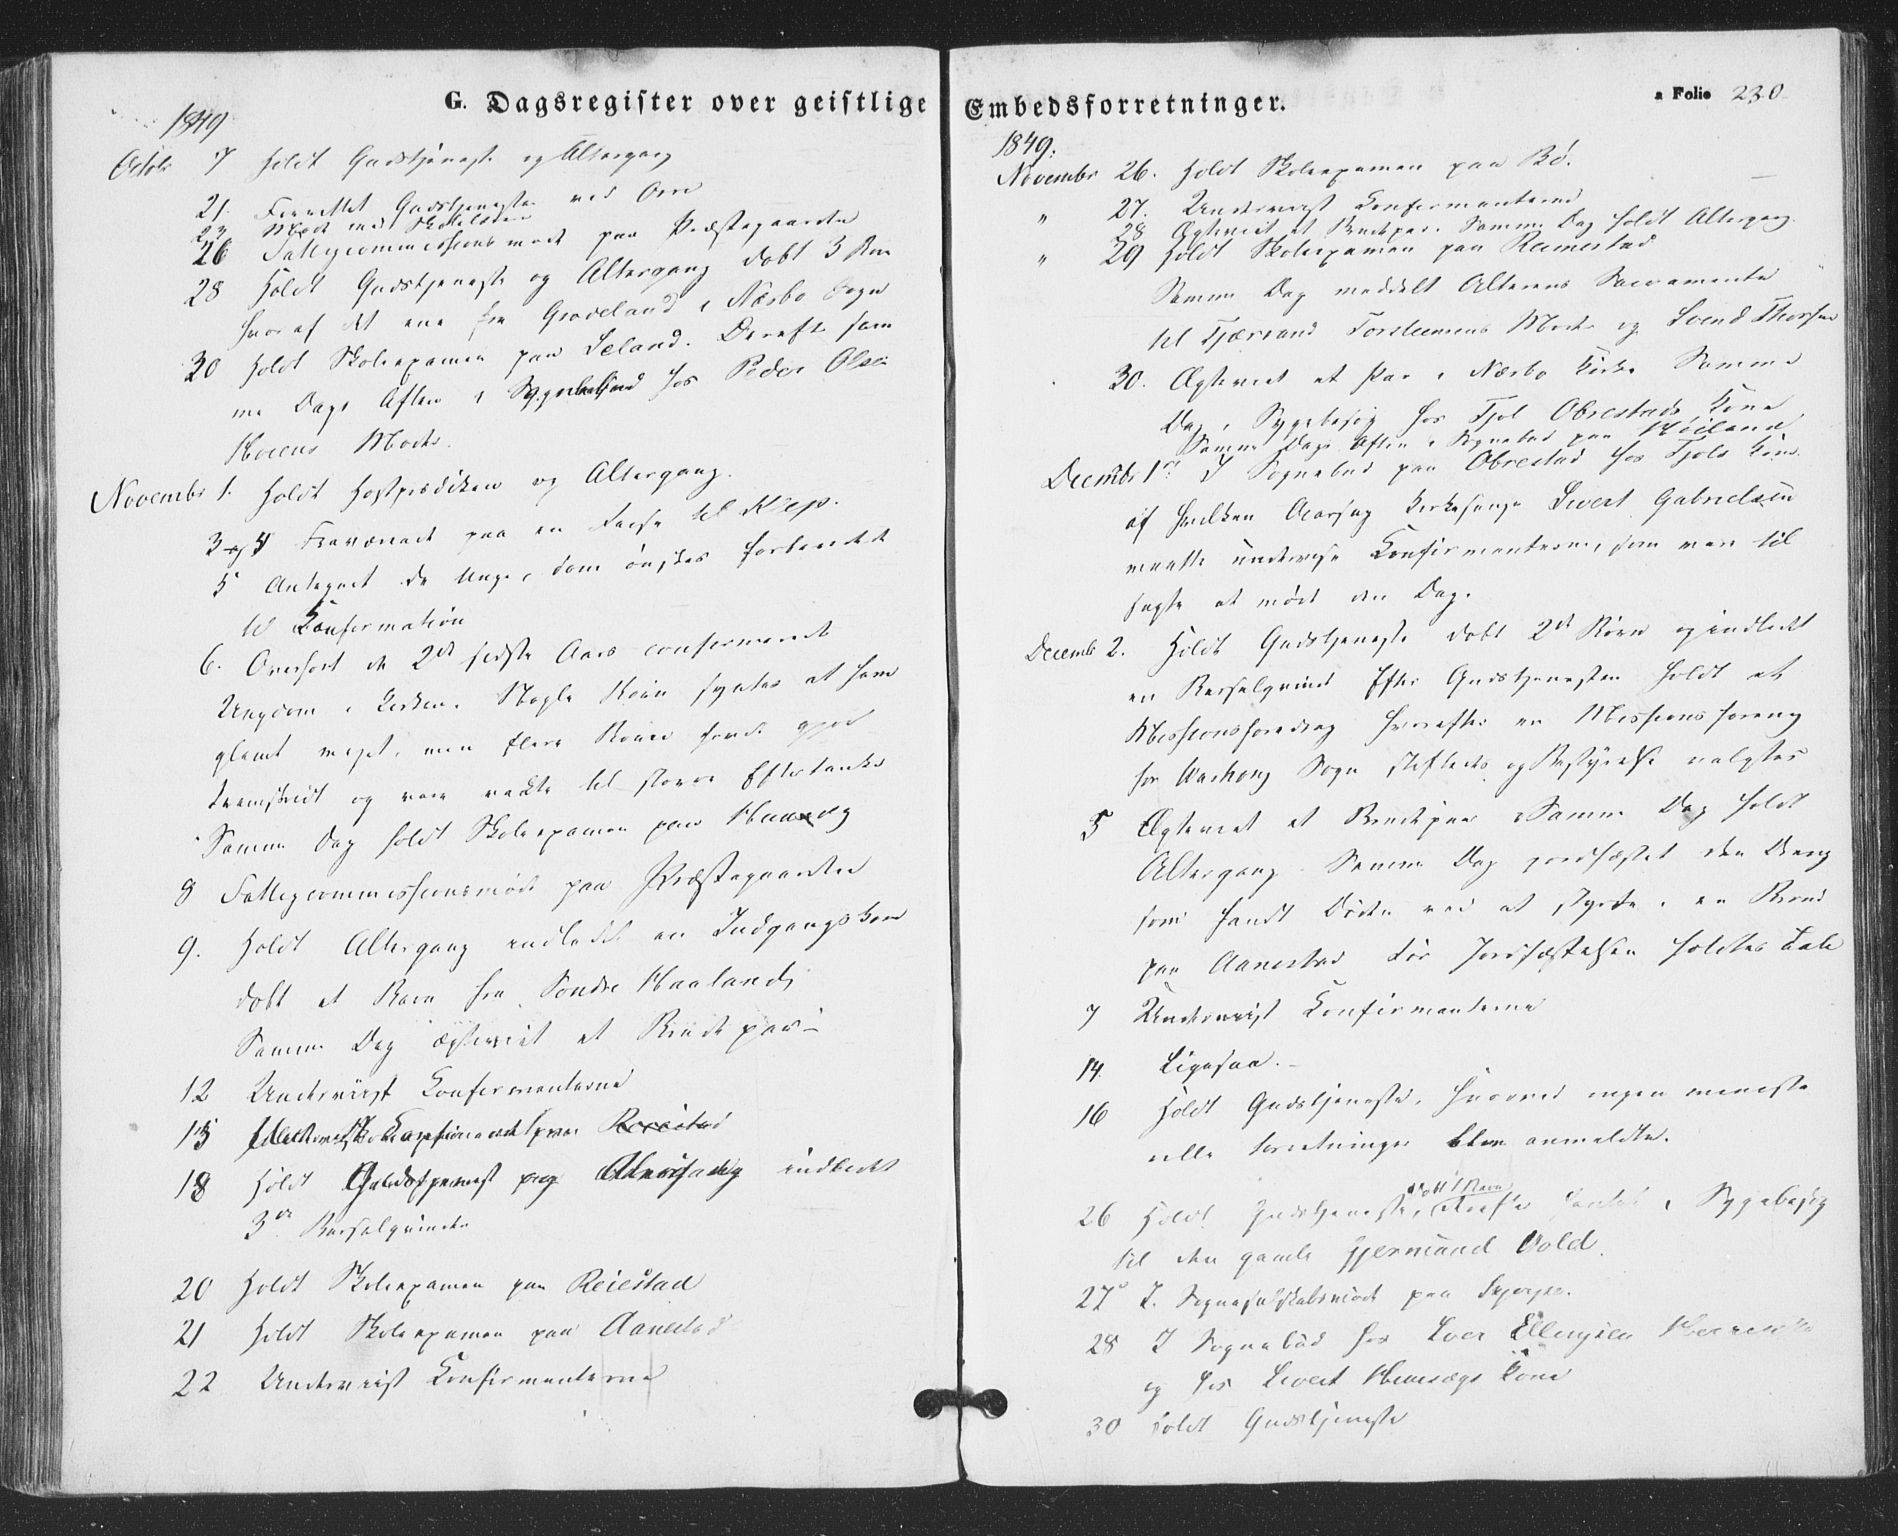 G. Dagsregister over geistlige
1849
Octobr 7 Holdt Gudstjeneste og Altergang
21. Forrettet Gudstjenesten ved Orre
23 Møde med
26 Fattigcommissionsmøde paa Præstegaarden
28 Holdt Gudstjeneste og Altergang døbt 3 Børn
hvoraf det ene fra Grødeland i Nærbø Sogn
30 Holdt Skoleexamen paa Leland. Derefter sam
me Dags Aften i Sognebud hos Peder Olsen
Moder.
Novembr 1. Holdt Høstprædiken og Altergang.
3 og 4 Fraværende paa en Reise til Klep.
5 Antegnet de Unge, som ønskes forberedet
til Confirmation
6. Overhørt de 2de sidste Aars confirmerede
Ungdom i Kirken. Nogle Børn syntes at have
glemt meget, men flere Børn havde gjort
Fremskridt og vare vakte til større Eftertanke
Samme Dag holdt Skoleexamen paa
8 Fattigcommissionsmøde paa Præstegaarden
9. Holdt Altergang indledet en Indgangskone
døbt et Barn fra Søndre Haaland,
Samme Dag ægteviet et Brudepar
12 Underviist Confirmanterne
15
18 Holdt Gudstjeneste og Altergang indledet
3de Barselqvinder
20 Holdt Skoleexamen paa Reiestad
21 Holdt Skoleexamen paa Aanestad
22 Underviist Confirmanterne
Embedsforretninger.
a Folio 230.
1849.
Novembr 26. Holdt Skoleexamen paa Bø.
" 27. Underviist Confirmanterne
28 Ægteviet et Brudepar. Samme Dag holdt Altergang.
" 29 Holdt Skoleexamen paa Reimestad
Samme Dag meddelt Alterens Sacramente
til Tjærand Torsteinsens Moder og Svend Thorsen
30. Ægteviet et Par i Nærbø Kirke Samme
Dag i Sygebesøg hos Tjøl Obrestads Kone
Samme Dags Aften i Sognebud paa Høiland
Decembr 1ste I Sognebud paa Obrestad hos Tjøls Kone
af hvilken Aarsag Kirkesanger Sivert Gabrielsen
maatte undervise Confirmanterne, som vare til
sagte at møde den Dag.
Decemb 2. Holdt Gudstjeneste døbt 2de Børn og indledet
en Barselqvinde Efter Gudstjenesten holdt et
Missionsforedrag hvorefter en Missionsforening
for Varhoug Sogn stiftedes og Bestyrelse valgtes
5 Ægteviet et Brudepar Samme Dag holdt
Altergang Samme Dag jordfæstet den Dreng
som fandt Døden ved at styrte i en Brønd
paa Aanestad Før Jordfæstelsen holdtes Tale
7 Underviist Confirmanterne
14. Ligesaa.
16 Holdt Gudstjeneste, hvorved ingen ministe
rielle Forretninger blev anmeldte.
26 Holdt Gudstjeneste, døbt 1 Barn i Sygebesøg
til den gamle Gjermund Vold.
27 I. Sogneselskabsmøde paa
28 I Sognebud hos Iver Ellingsen
og hos Sivert Kone
30 Holdt Gudstjeneste